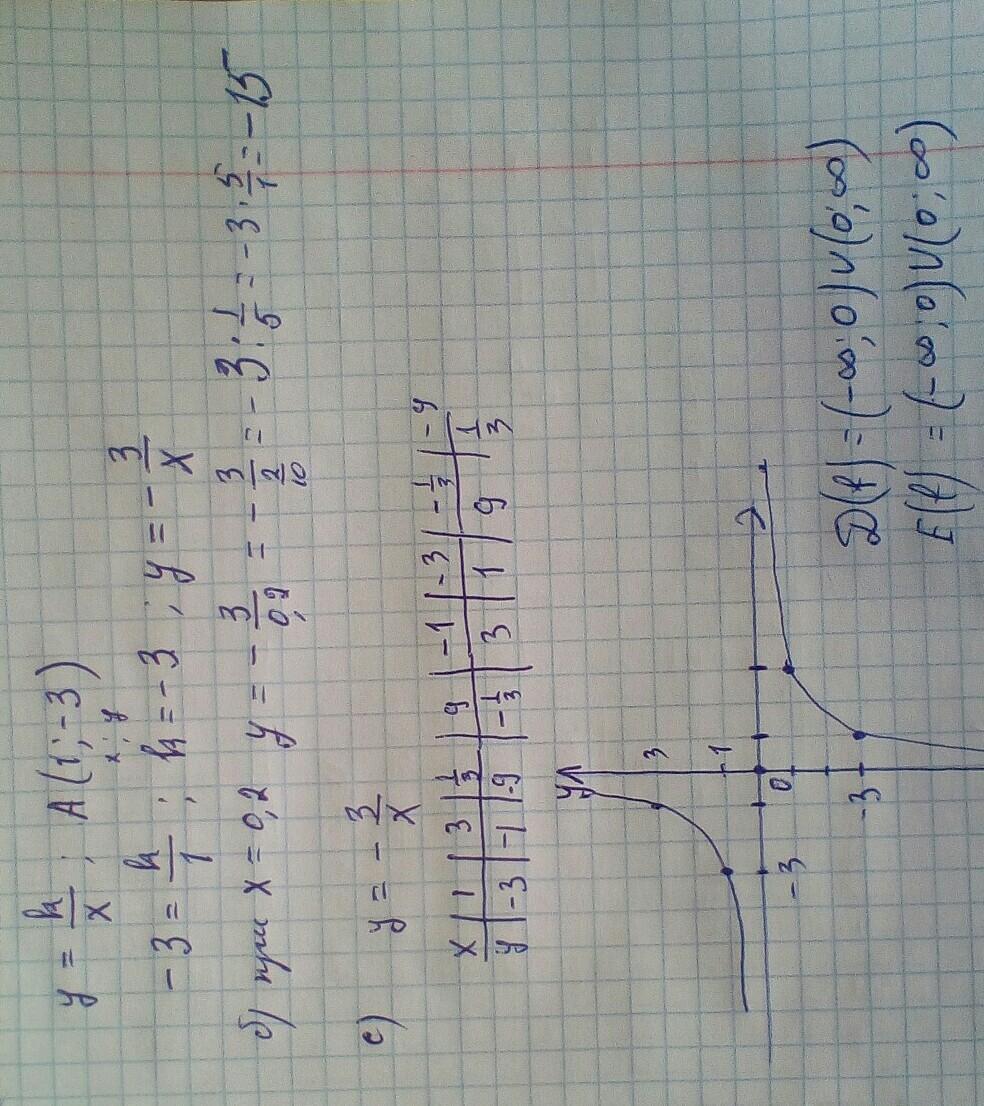 y = k/x ; A(1; -3)
x; y
-3 = k/1 ; k = -3 ; y = -3/x
б) при x = 0,2 y = -3/0,2 = -3/(2/10) = -3 : 1/5 = -3 · 5/1 = -15
c) y = -3/x
x | 1 | 3 | 1/3 | 9 | -1 | -3 | -1/3 | -9
y | -3 | -1 | -9 | -1/3 | 3 | 1 | 9 | 1/3
y
3
1
-3 0
-3
D(f) = (-∞; 0) ∪ (0; ∞)
E(f) = (-∞; 0) ∪ (0; ∞)